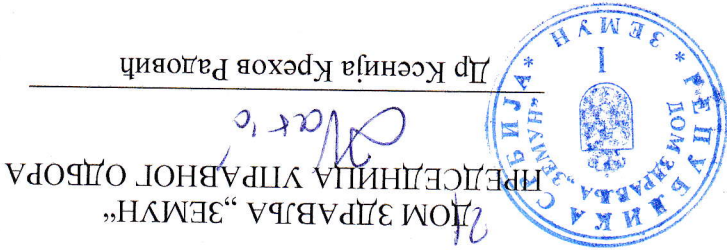 ДОМ ЗДРАВЉА „ЗЕМУН“
ПРЕДСЕДНИЦА УПРАВНОГ ОДБОРА
Др Ксенија Крехов Радовић
РЕПУБЛИКА СРБИЈА * ЗЕМУН *
ДОМ ЗДРАВЉА „ЗЕМУН“
I